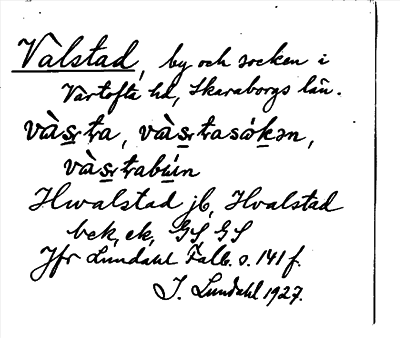 Valstad, by och socken i
Vartofta hd, Skaraborgs län.
và̀s̱ṯa, và̀s̱ṯasóḵən,
và̀s̱ṯabẃn
Hwalstad jb, Hvalstad
bek, ek, GS, GS
Jfr Lundahl Falb. s. 141 f.
I. Lundahl 1927.